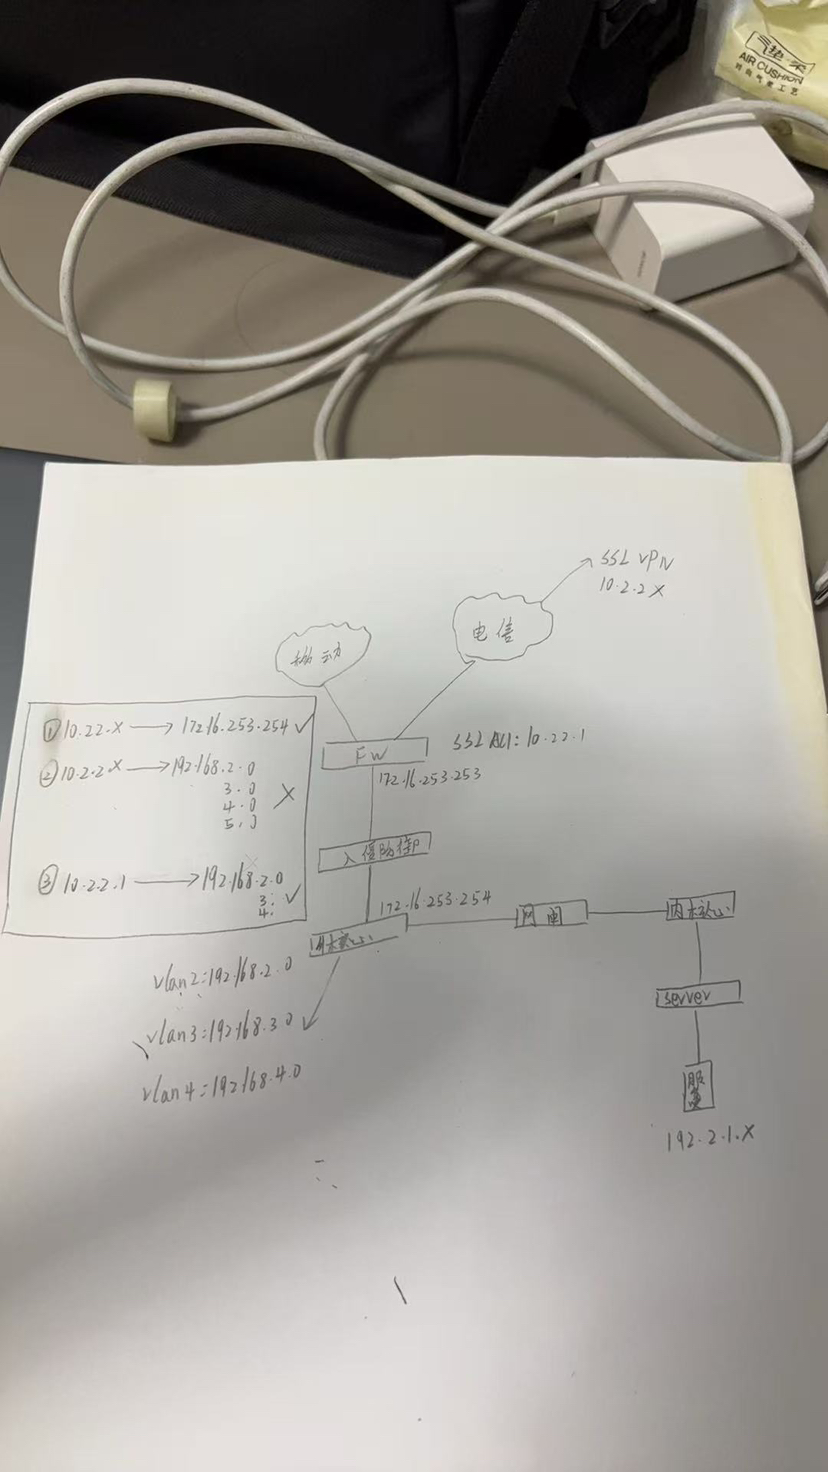 气垫
AIR CUSHION
SSL VPN
10.2.2 X
移动
电信
① 10.22.X → 172.16.253.254 ✓
② 10.2.2.X → 192.168.2.0
3.0
4.0
5.0
X
③ 10.2.2.1 → 192.168.2.0
3.
4.
✓
FW
172.16.253.253
入侵防御
172.16.253.254
网闸
内核心
外核心
vlan2:192.168.2.0
vlan3:192.168.3.0
vlan4:192.168.4.0
server
192.2.1.X